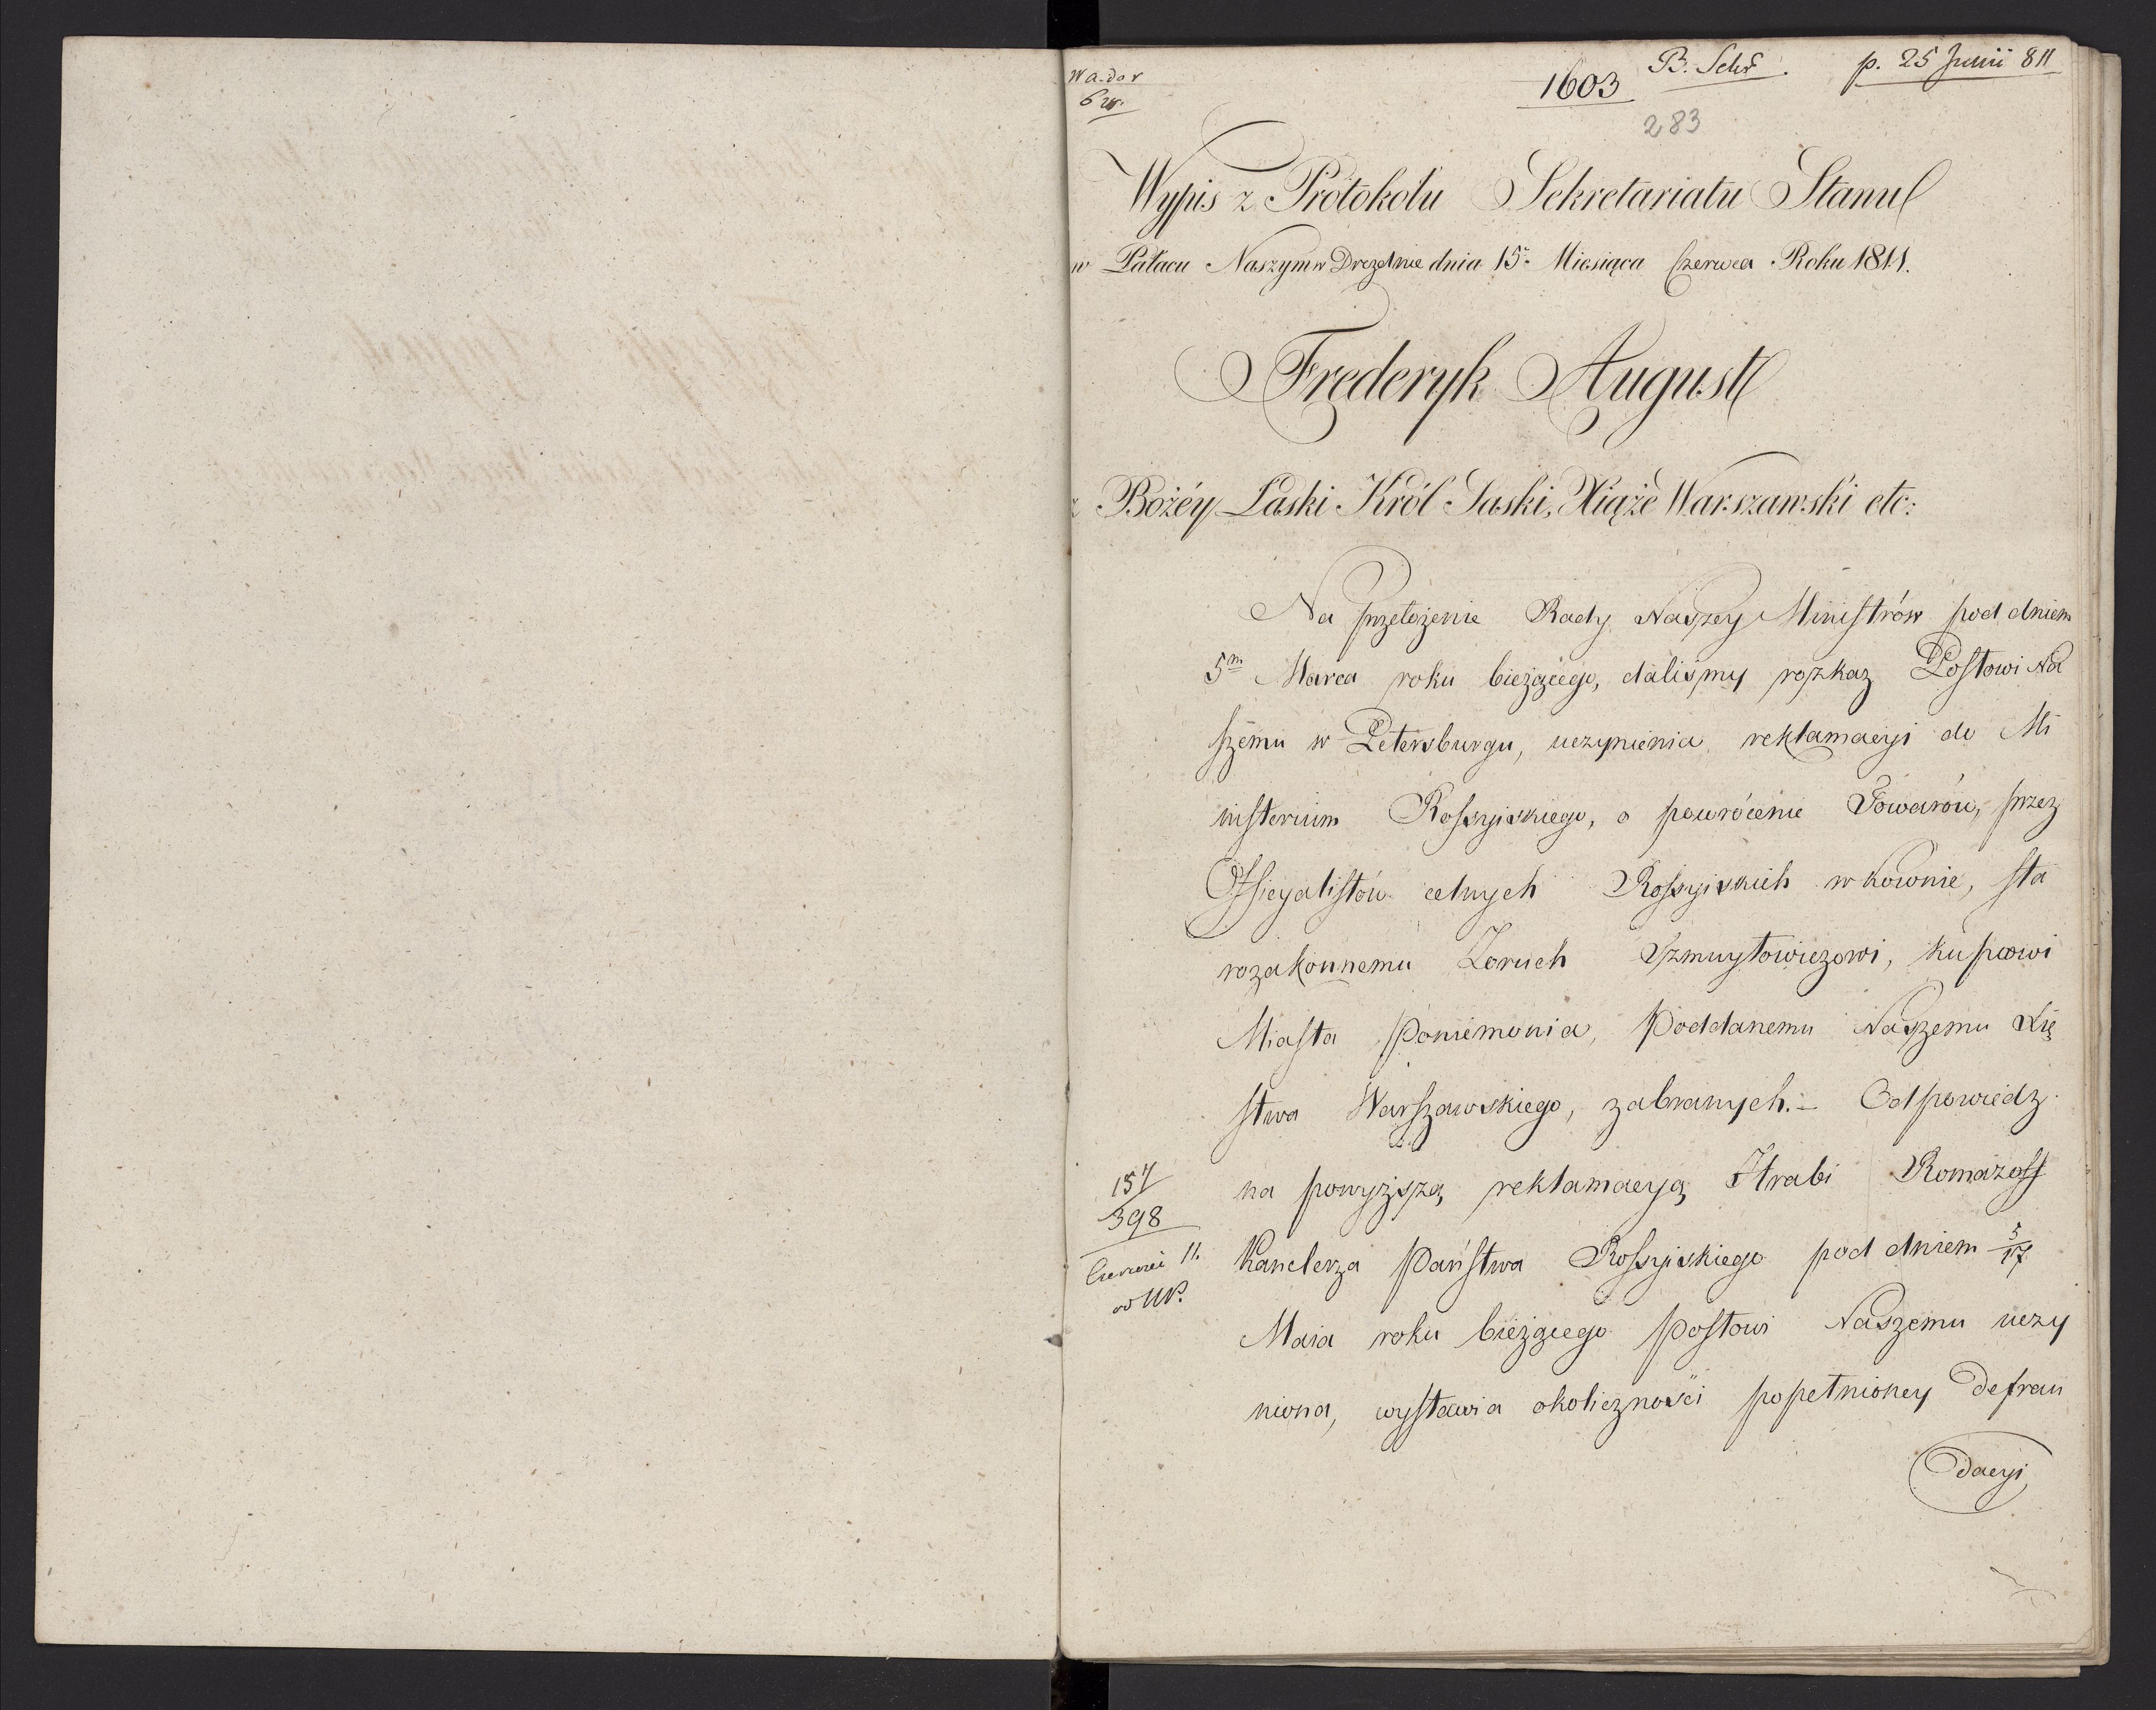 1603 B. Schr. p. 25 Junii 811
283
Wypis z Protokołu Sekretariatu Stanu
w Pałacu Naszym w Dreznie dnia 15. Miesiąca Czerwca Roku 1811.
Frederyk August
z Bożéy Łaski Król Saski, Xiąże Warszawski etc:
Na przełożenie Rady Naszey Ministrów pod dniem
5m Marca roku bieżącego, daliśmy rozkaz Posłowi Na
szému w Petersburgu, uczynienia reklamacyi do Mi
nisterium Rossyiskiego, o powrócenie Towarów, przez
Officyalistów celnych Rossyiskich w Kownie, sta
rozakonnemu Zoruch Szmuyłowiczowi, kupcowi
Miasta Poniemonia, Poddanemu Naszemu Xię
stwa Warszawskiego, zabranych. – Odpowiedz
na powyższą reklamacyą Hrabi Romazoff
Kanclerza Państwa Rossyiskiego pod dniem 5/17
Maia roku bieżącego Posłowi Naszemu uczy
niona, wystawia okoliczności popełnioney Defrau
dacyi
157
398
Czerwca 11.